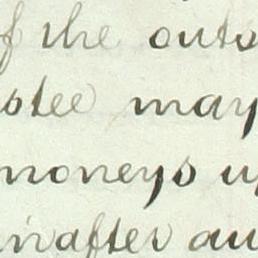 f the outs
stee may
moneys u
inafter au